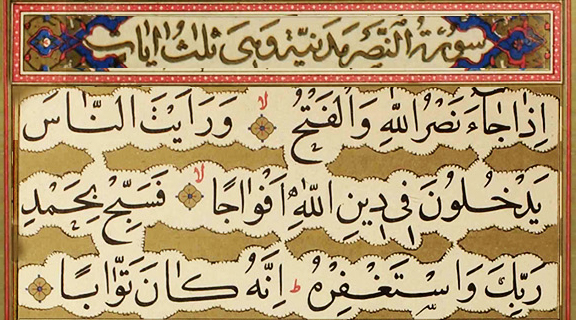 سورة النصر مدنية وهى ثلث ايات
اِذَا جَآءَ نَصْرُ اللّٰهِ وَالْفَتْحُ ۙ وَرَاَيْتَ النَّاسَ
يَدْخُلُونَ فِى دِينِ اللّٰهِ اَفْوَاجًا ۙ فَسَبِّحْ بِحَمْدِ
رَبِّكَ وَاسْتَغْفِرْهُ ط اِنَّهُ كَانَ تَوَّابًا